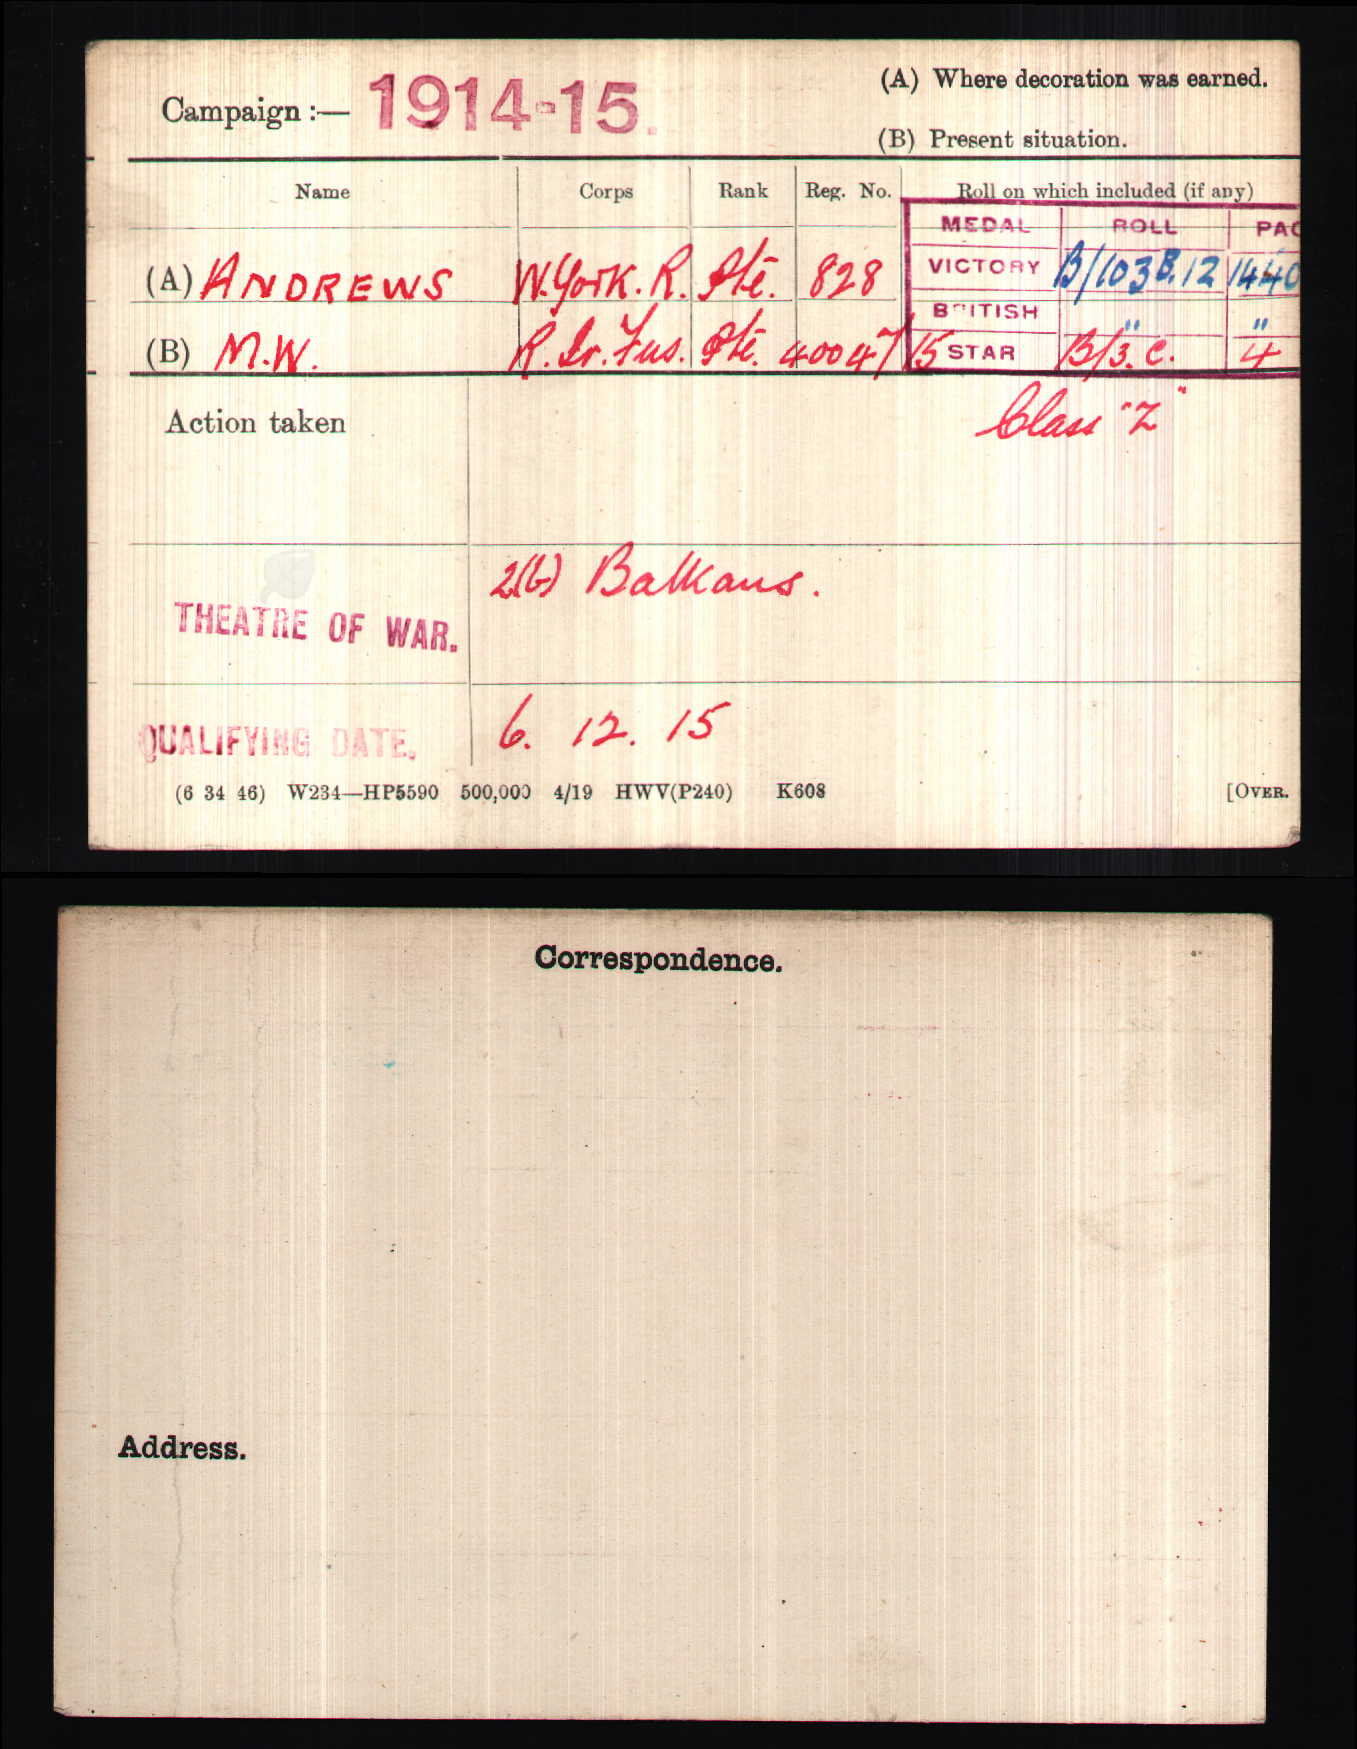 Campaign :— 1914-15.
(A) Where decoration was earned.
(B) Present situation.
Name Corps Rank Reg. No. Roll on which included (if any)
MEDAL ROLL PAG
(A) ANDREWS W. York. R. Pte. 828 VICTORY B/103 B.12 1440
BRITISH " "
(B) M.W. R. Ir. Fus. Pte. 40047 15 STAR B/3. C. 4
Action taken Class "Z"
THEATRE OF WAR. 2(b) Balkans.
QUALIFYING DATE. 6. 12. 15
(6 34 46) W234—HP5590 500,000 4/19 HWV(P240) K608 [OVER.
Correspondence.
Address.